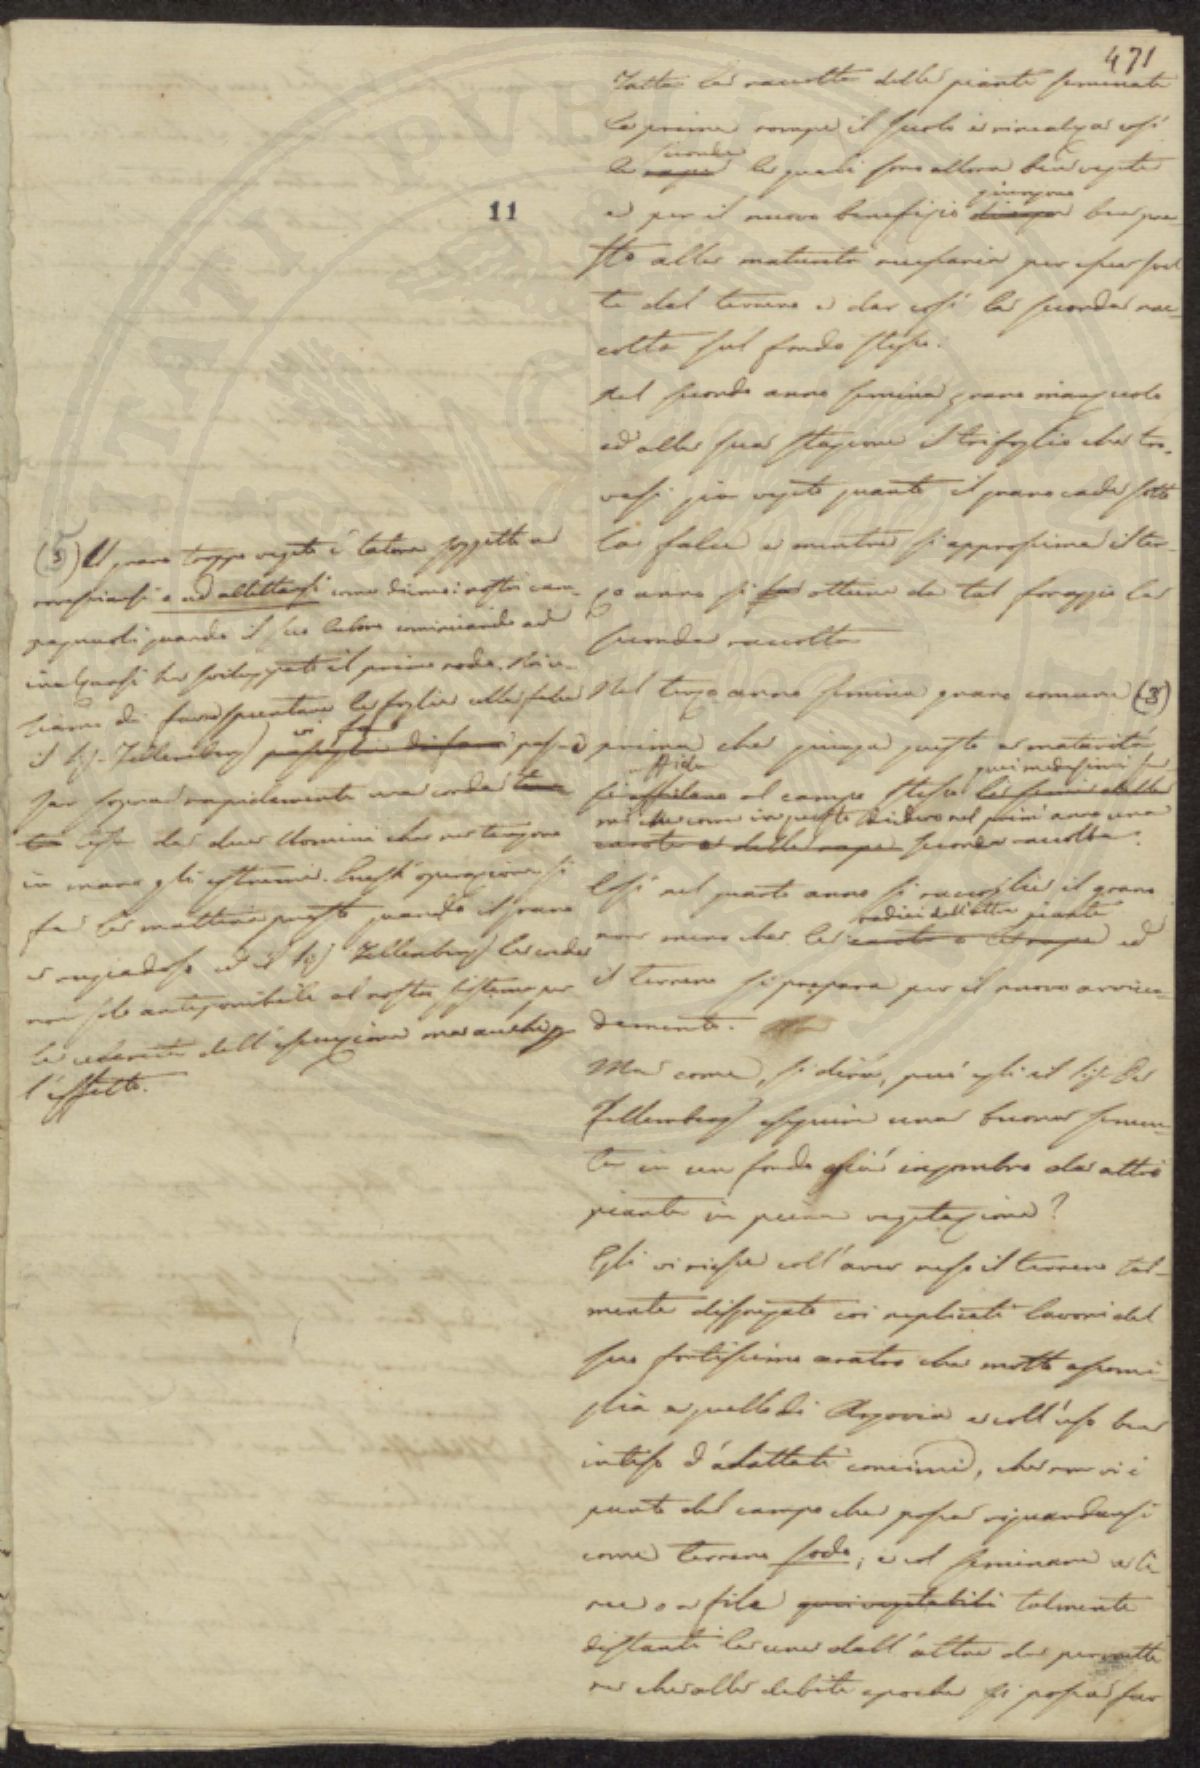 471
11
Fatta la raccolta delle piante seminate
le prime rompe il suolo e rincalza così
seconde
le rape le quali sono allora ben vegete
giungono
e per il nuovo benefizio giunge ben pre-
sto alla maturità necessaria per esser svel
te dal terreno e dar così la seconda rac-
colta sul fondo stesso.
Nel secondo anno semina grano marzuolo
ed alla sua stagione il trifoglio che tro-
vasi già vegeto quanto il grano cade sotto
la falce e mentre si approssima il ter-
zo anno si ottiene da tal foraggio la
seconda raccolta
Nel terzo anno semina grano comune (3)
prima che giunga questo a maturità
affida quei medesimi se
si affidano al campo stesso li semi delle
mi che come in questo diedero nel primo anno una
carote e delle rape seconda raccolta.
Così nel quarto anno si raccoglie il grano
radici dell'altre piante
non meno che le carote e le rape ed
il terreno si prepara per il nuovo avvicen-
damento.
Ma come, si dirà, può egli il Sig. De
Fellemberg eseguire una buona semen-
ta in un fondo già ingombro da altre
piante in piena vegetazione?
Egli vi riesce coll'aver reso il terreno tal-
mente disgregato coi replicati lavori del
suo fortissimo aratro che molto assomi-
glia a quello di Argovia e coll'uso ben
inteso d'adattati concimi, che non vi è
punto del campo che possa riguardarsi
come terreno sodo; e col seminare a li
nee o a file quei vegetabili talmente
distanti le une dall'altre da permette
re che alle debite epoche si possa far
(3) Il grano troppo vegeto è talora soggetto a
rovesciarsi o ad allettarsi come dicono i nostri cam-
pagnuoli quando il suo culmo cominciando ad
inalzarsi ha sviluppato il primo nodo. Noi u-
siamo di farne spuntare le foglie colla falce
vi fa
il Sig. Fellemberg passa-
far sopra rapidamente una corda
tesa da due Uomini che ne tengono
in mano gli estremi. Quest'operazione si
fa la mattina presto quando il grano
è rugiadoso ed il Sig. Fellemberg la crede
non solo anteponibile al nostro sistema per
la celerità dell'esecuzione ma anche p
l'effetto.